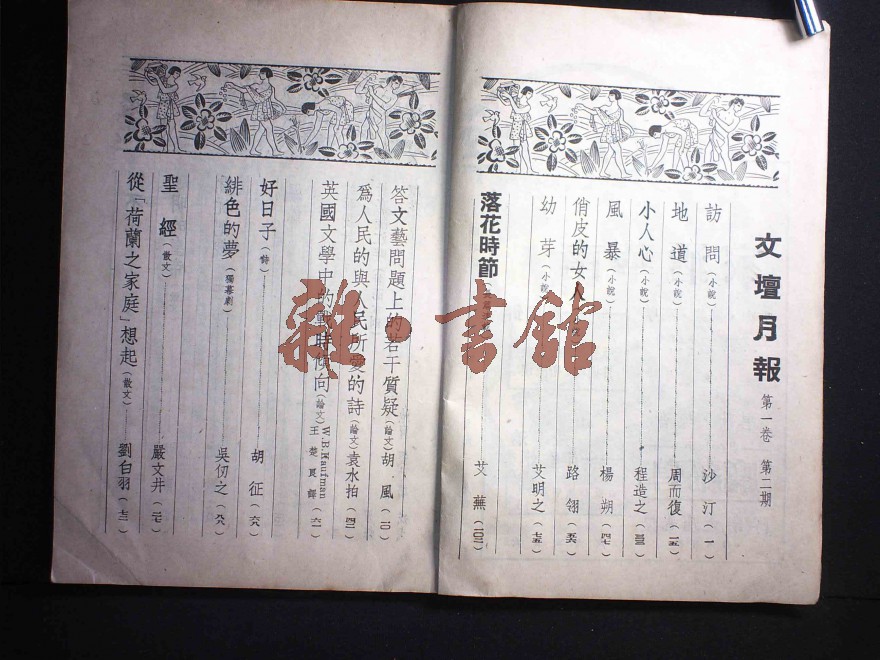 文壇月報 第一卷 第二期
訪問（小說） 沙汀（一）
地道（小說） 周而復（一五）
小人心（小說） 程造之
風暴（小說） 楊朔（四七）
俏皮的女人 路翎（五六）
幼芽（小說） 艾明之（七五）
落花時節 艾蕪（一〇三）
答文藝問題上的若干質疑（論文） 胡風（一〇）
為人民的與人民所愛的詩（論文） 袁水拍（四一）
英國文學中的戰時傾向（論文） W.B.Kaufman 王楚良譯（六一）
好日子（詩） 胡征（六六）
緋色的夢（獨幕劇） 吳仞之（六八）
聖經（散文） 嚴文井（二七）
從「荷蘭之家庭」想起（散文） 劉白羽（七三）
雜·書館